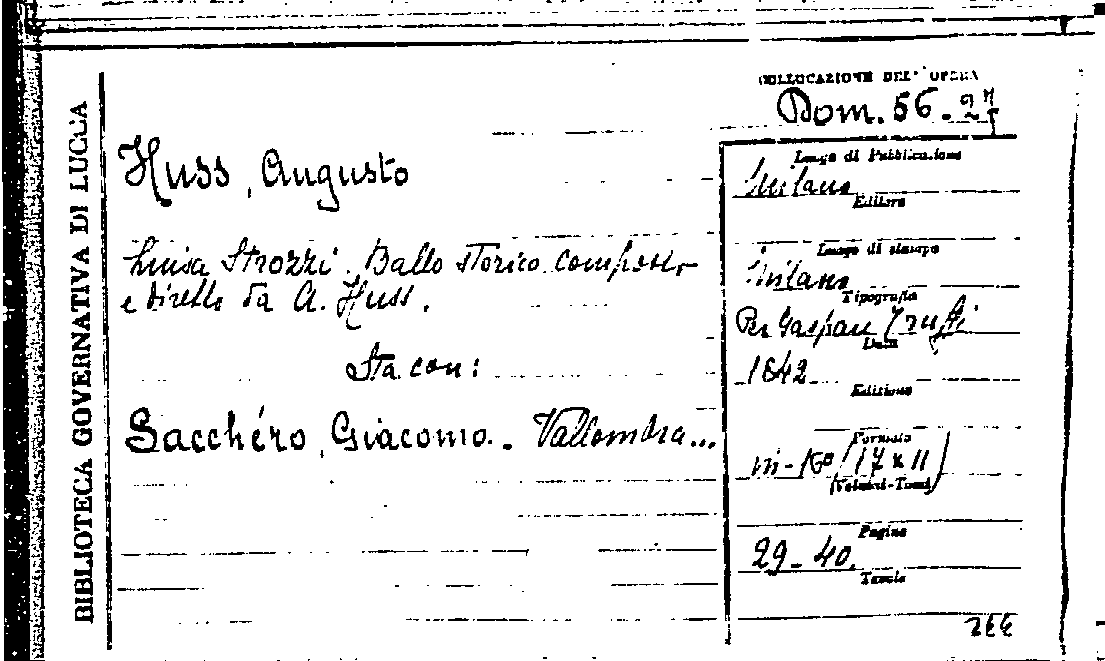 BIBLIOTECA GOVERNATIVA DI LUCCA
COLLOCAZIONE DELL'OPERA
Dom. 56. 27
Huss, Augusto
Luisa Strozzi. Ballo storico composto
e diretto da A. Huss.
Sta con:
Sacchéro, Giacomo. - Vallombra...
Luogo di Pubblicazione
Milano
Editore
Luogo di stampa
Milano
Tipografia
Per Gaspare Truffi
Data
1842
Edizione
Formato
in-16º (17 x 11)
(Volumi-Tomi)
Pagine
29-40.
Tavole